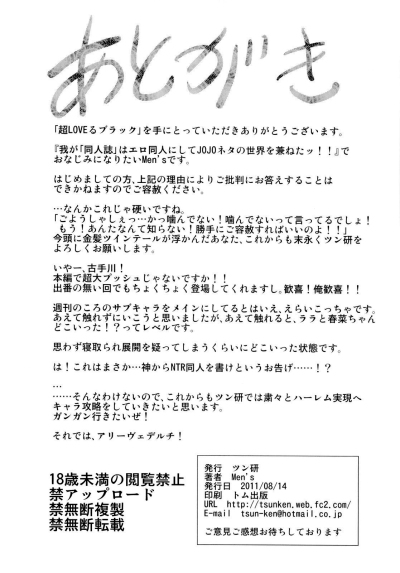 あとがき
「超LOVEるブラック」を手にとっていただきありがとうございます。
『我が「同人誌」はエロ同人にしてJOJOネタの世界を兼ねたッ！！』で
おなじみになりたいMen'sです。
はじめましての方、上記の理由によりご批判にお答えすることは
できかねますのでご容赦ください。
…なんかこれじゃ硬いですね。
「ごようしゃしぇっ…かっ噛んでない！噛んでないって言ってるでしょ！
もう！あんたなんて知らない！勝手にご容赦すればいいのよ！！」
今頭に金髪ツインテールが浮かんだあなた、これからも末永くツン研を
よろしくお願いします。
いやー、古手川！
本編で超大プッシュじゃないですか！！
出番の無い回でもちょくちょく登場してくれますし。歓喜！俺歓喜！！
週刊のころのサブキャラをメインにしてるとはいえ、えらいこっちゃです。
あえて触れずにいこうと思いましたが、あえて触れると、ララと春菜ちゃん
どこいった！？ってレベルです。
思わず寝取られ展開を疑ってしまうくらいにどこいった状態です。
は！これはまさか…神からNTR同人を書けというお告げ……！？
…
……そんなわけないので、これからもツン研では粛々とハーレム実現へ
キャラ攻略をしていきたいと思います。
ガンガン行きたいぜ！
それでは、アリーヴェデルチ！
18歳未満の閲覧禁止
禁アップロード
禁無断複製
禁無断転載
発行 ツン研
著者 Men's
発行日 2011/08/14
印刷 トム出版
URL http://tsunken.web.fc2.com/
E-mail tsun-ken@hotmail.co.jp
ご意見ご感想お待ちしております